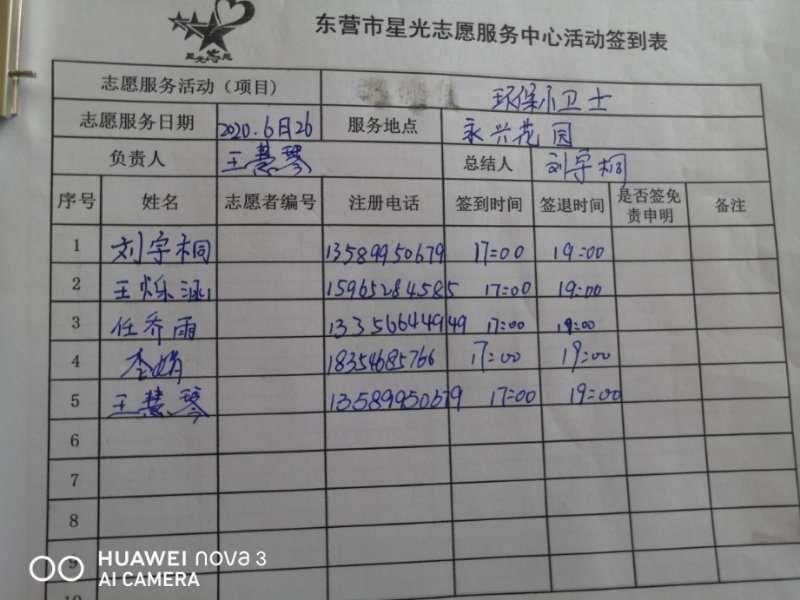 星光志愿
东营市星光志愿服务中心活动签到表
志愿服务活动（项目） 环保小卫士
志愿服务日期 2020.6月26 服务地点 永兴花园
负责人 王慧琴 总结人 刘宇桐
序号 姓名 志愿者编号 注册电话 签到时间 签退时间 是否签免责申明 备注
1 刘宇桐 13589950679 17:00 19:00
2 王烁涵 15965284585 17:00 19:00
3 任乔雨 13356644949 17:00 19:00
4 李娟 18354685766 17:00 19:00
5 王慧琴 13589950679 17:00 19:00
6
7
8
9
10
HUAWEI nova 3
AI CAMERA